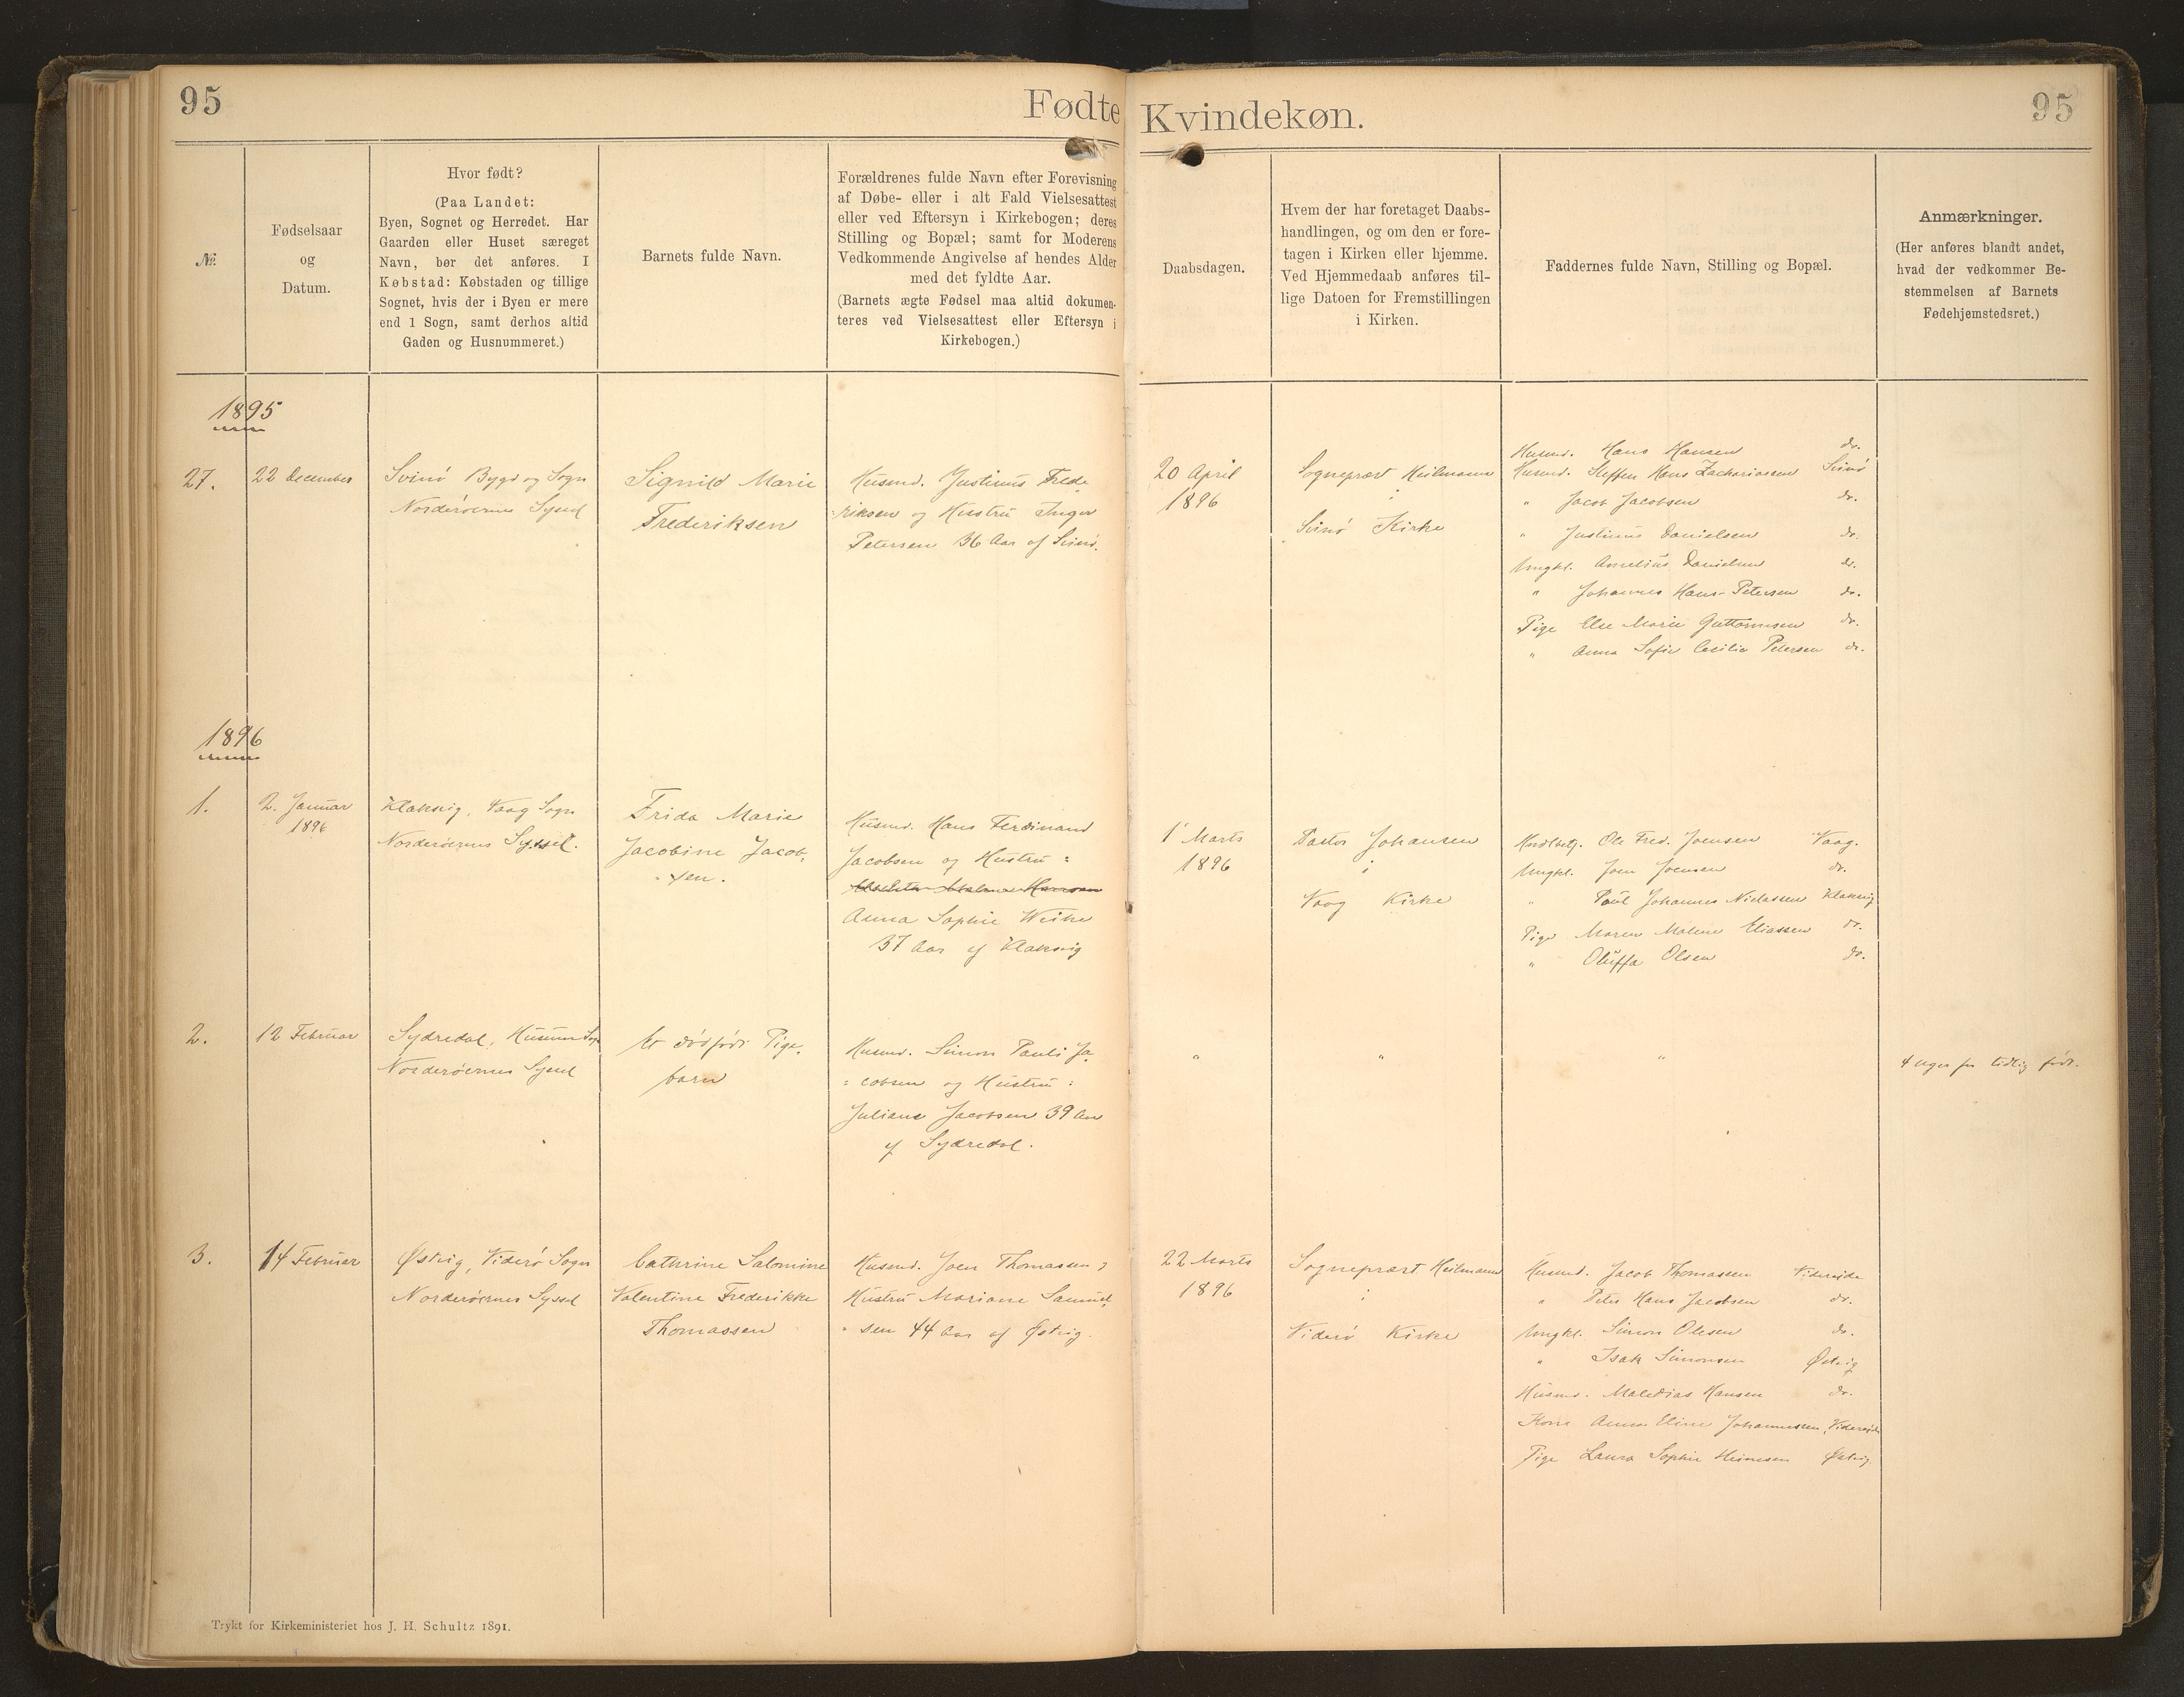 95
Fødte
Kvindekøn.
95
№
Fødselsaar
og
Datum.
Hvor født?
(Paa Landet:
Byen, Sognet og Herredet. Har
Gaarden eller Huset særeget
Navn, bør det anføres. I
Købstad: Købstaden og tillige
Sognet, hvis der i Byen er mere
end 1 Sogn, samt derhos altid
Gaden og Husnummeret.)
Barnets fulde Navn.
Forældrenes fulde Navn efter Forevisning
af Døbe- eller i alt Fald Vielsesattest
eller ved Eftersyn i Kirkebogen; deres
Stilling og Bopæl; samt for Moderens
Vedkommende Angivelse af hendes Alder
med det fyldte Aar.
(Barnets ægte Fødsel maa altid dokumen-
teres ved Vielsesattest eller Eftersyn i
Kirkebogen.)
Daabsdagen.
Hvem der har foretaget Daabs-
handlingen, og om den er fore-
tagen i Kirken eller hjemme.
Ved Hjemmedaab anføres til-
lige Datoen for Fremstillingen
i Kirken.
Faddernes fulde Navn, Stilling og Bopæl.
Anmærkninger.
(Her anføres blandt andet,
hvad der vedkommer Be-
stemmelsen af Barnets
Fødehjemstedsret.)
1895
27.
22 December
Svinö Bygd og Sogn
Norderöernes Syssel
Signild Marie
Frederiksen
Husmd. Justinus Frede
riksen og Hustru Inger
Petersen 36 Aar af Svinö.
20 April
1896
Sognepræst Heilmann
i
Svinö Kirke
Husmd. Hans Hansen do.
Husmd. Steffen Hans Zachariassen Svinö
" Jacob Jacobsen do.
" Justinus Danielsen do.
Ungkl. Danielsen do.
" Johannes Hans Petersen do.
Pige Else Marie Guttormsen do.
" Anna Sofie Cecilie Petersen do.
1896
1.
2. Januar
1896
Klaksvig, Vaag Sogn
Norderöernes Syssel.
Frida Marie
Jacobine Jacob-
sen.
Husmd. Hans Ferdinand
Jacobsen og Hustru :
Anna Sophie Weihe
37 Aar af Klaksvig
1 Marts
1896
Pastor Johansen
i
Vaag Kirke
Ole Fred. Joensen Vaag.
Ungkl. Joen Joensen do.
" Poul Johannes Niclassen Klaksvig
Pige Maren Malene Eliassen do.
" Oluffa Olsen do.
2.
12 Februar
Sydredal, Husum Sogn
Norderöernes Syssel
Et dödfödt Pige-
barn
Husmd. Simon Pauli Ja
: cobsen og Hustru :
Juliane Jacobsen 39 Aar
af Sydredal.
"
"
"
4 Uger for tidlig födt.
3.
14 Februar
Østvig, Viderö Sogn
Norderöernes Syssel
Cathrine Salomine
Valentine Frederikke
Thomassen
Husmd. Joen Thomassen &
Hustru Mariane Samuel
" sen 44 Aar af Østvig.
22 Marts
1896
Sognepræst Heilmann
i
Viderö Kirke
Husmd. Jacob Thomassen Videreide
" Peter Hans Jacobsen do.
Ungkl. Simon Olesen do.
" Isak Simonsen Østvig
Husmd. Maledias Hansen do.
Kone Anna Eline Johannessen, Videreide
Pige Laura Sophie Heinesen Østvig.
Trykt for Kirkeministeriet hos J. H. Schultz 1891.